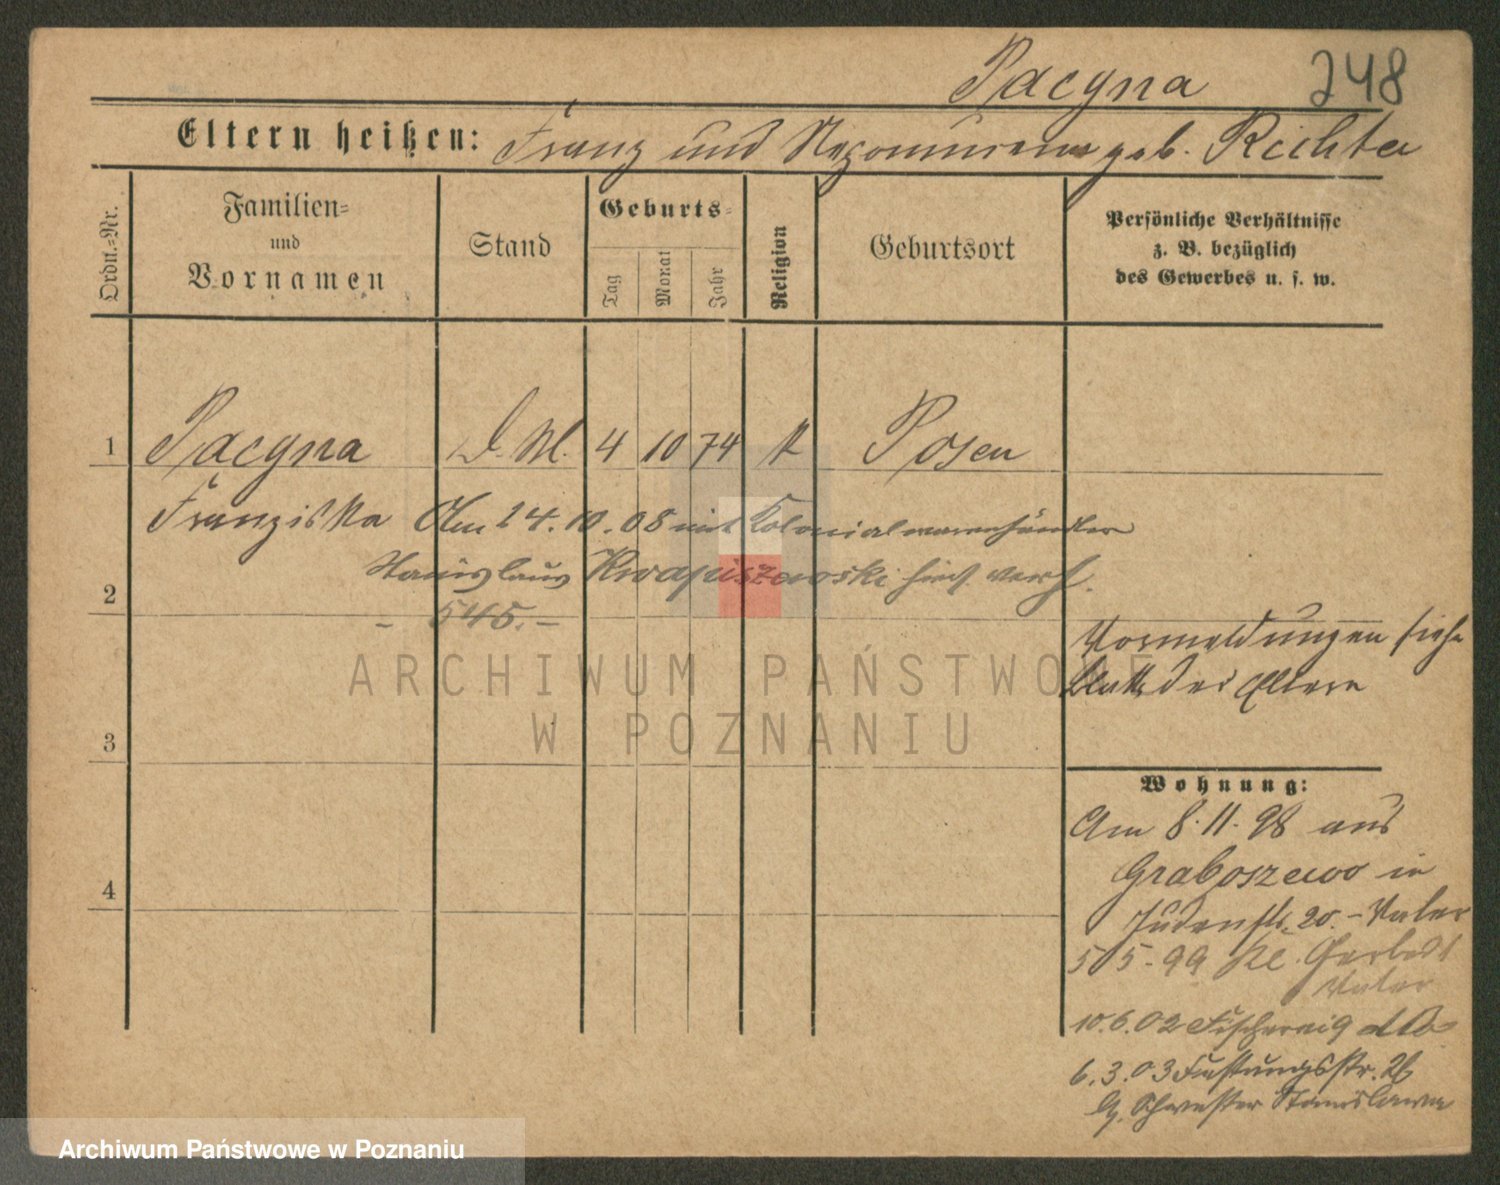 Pacyna 248
Eltern heißen: Franz und Nepomucena geb. Richter
Ordn.-Nr.
Familien-
und
Vornamen
Stand
Geburts-
Tag
Monat
Jahr
Religion
Geburtsort
Persönliche Verhältnisse
z. B. bezüglich
des Gewerbes u. s. w.
1 Pacyna D. M. 4 10 74 K Posen
Franziska Am 24.10.08 mit Kolonialwarenhändler
Stanislaus Kwapiszewski hies. verh.
2
– 545. –
Vormeldungen siehe
Blatt der Eltern
ARCHIWUM PAŃSTWOWE
W POZNANIU
3
Wohnung:
Am 8.11.98 aus
Graboszewo in
Judenstr. 20. – Vater
4
5/5-99 Kl. Gerberst
Vater
10.6.02 Fischerei 9
6.3.03 Festungsstr. 2b
Schwester Stanislawa
Archiwum Państwowe w Poznaniu